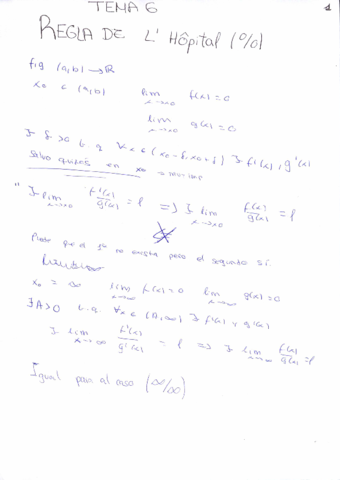 TEMA 6
REGLA DE L' Hôpital (0/0)
1
f,g (a,b) → R
x₀ ∈ (a,b) lim x→x₀ f(x) = 0
lim x→x₀ g(x) = 0
∃ δ > 0 t.q ∀x ∈ (x₀-δ, x₀+δ) ∃ f'(x), g'(x)
salvo quizás en x₀
" ∃ lim x→x₀ f'(x)/g'(x) = l ⇒ ∃ lim x→x₀ f(x)/g(x) = l
que el 1º no exista pero el segundo sí
x₀ = ∞ lim x→∞ f(x) = 0 lim x→∞ g(x) = 0
∃ A > 0 t.q ∀x ∈ (A,∞) ∃ f'(x) y g'(x)
∃ lim x→∞ f'(x)/g'(x) = l ⇒ ∃ lim x→∞ f(x)/g(x) = l
Igual para el caso (∞/∞)